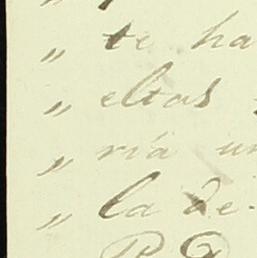 „ te ha
„ eltas
„ ria un
„ la de-